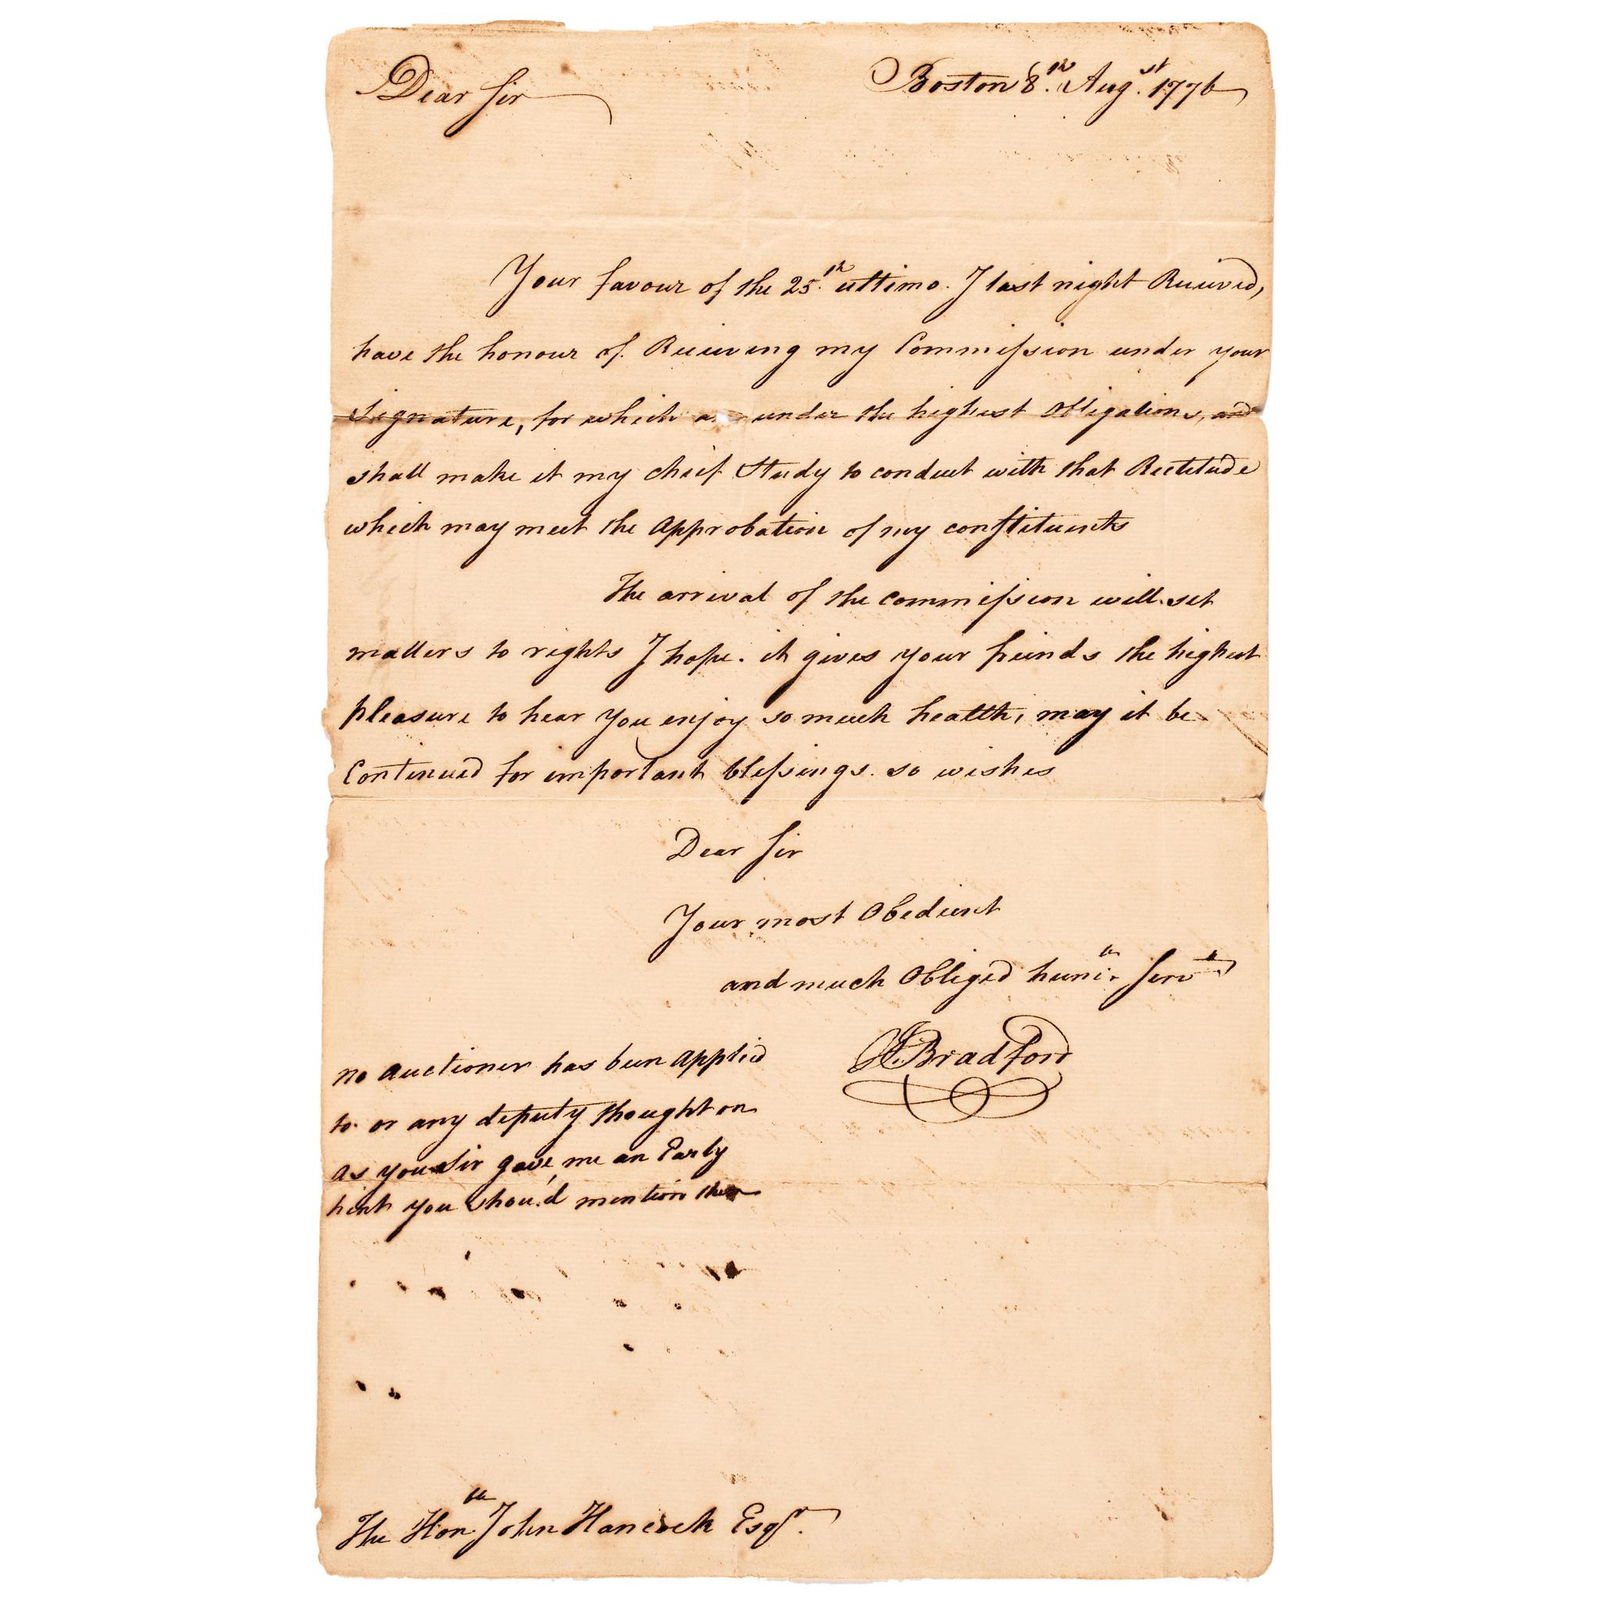 Dear Sir
Boston 8th. Augst. 1776
Your favour of the 25th. ultimo. I last night Received,
have the honour of Receiving my Commission under your
Signature, for which under the highest Obligations, and
shall make it my cheif Study to conduct with that Rectitude
which may meet the Approbation of my constituents
The arrival of the commission will set
matters to rights I hope. it gives your friends the highest
pleasure to hear you enjoy so much health, may it be
Continued for important blessings. so wishes
Dear Sir
Your most Obedient
and much Obliged Servt
J Bradford
no Auctioner has been Applied
to or any deputy thought on
as you Sir gave me an Early
hint you shou'd mention
The Hon. John Hancock Esqr.